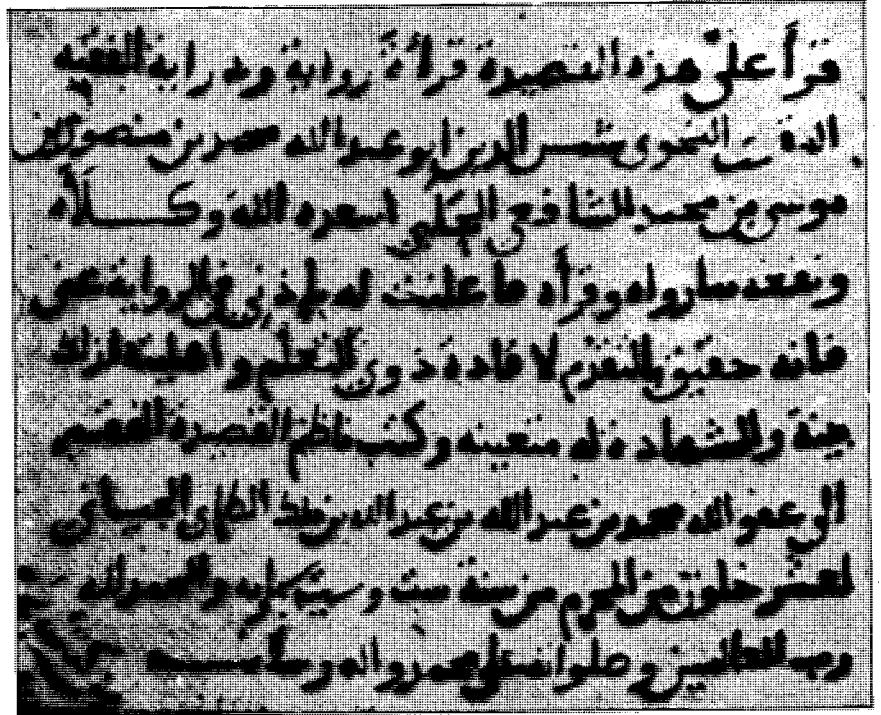 قرأ عليّ هذه القصيدة قراءة رواية ودراية الفقيه
النحوى شمس الدين ابو عبدالله محمد بن منصور بن
موسى بن محمد الشافعى الحلبى اسعده الله وكلأه
ونفعه بما رواه وقرأه فاعلنت له باذنى فى الرواية عنى
فانه حقيق بالتقدم لافادة ذوى التعلم واهليته لذلك
بينة والشهادة له متعينه وكتب ناظم القصيدة الفقير
الى عفو الله محمد بن عبدالله بن عبدالله بن ملك الطائى الجيانى
لعشر خلون من المحرم من سنة ست وستمايه والحمد لله
رب العالمين وصلواته على محمد واله وسلامـــه